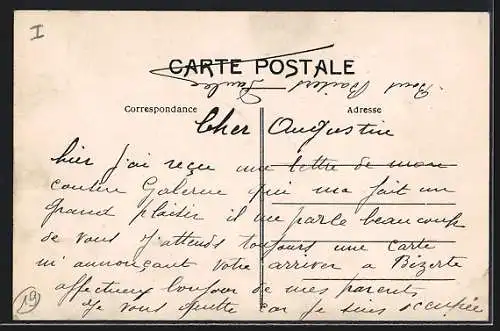 I
CARTE POSTALE
Bons Baisers
Correspondance
Adresse
Cher Augustin
hier j'ai reçu une lettre de mon
cousin Galerne qui ma fait un
grand plaisir il me parle beaucoup
de vous J'attends toujours une carte
m'annonçant votre arriver a Bizerte
affectueux bonjour de mes parents
Je vous quitte car je suis occupée
19